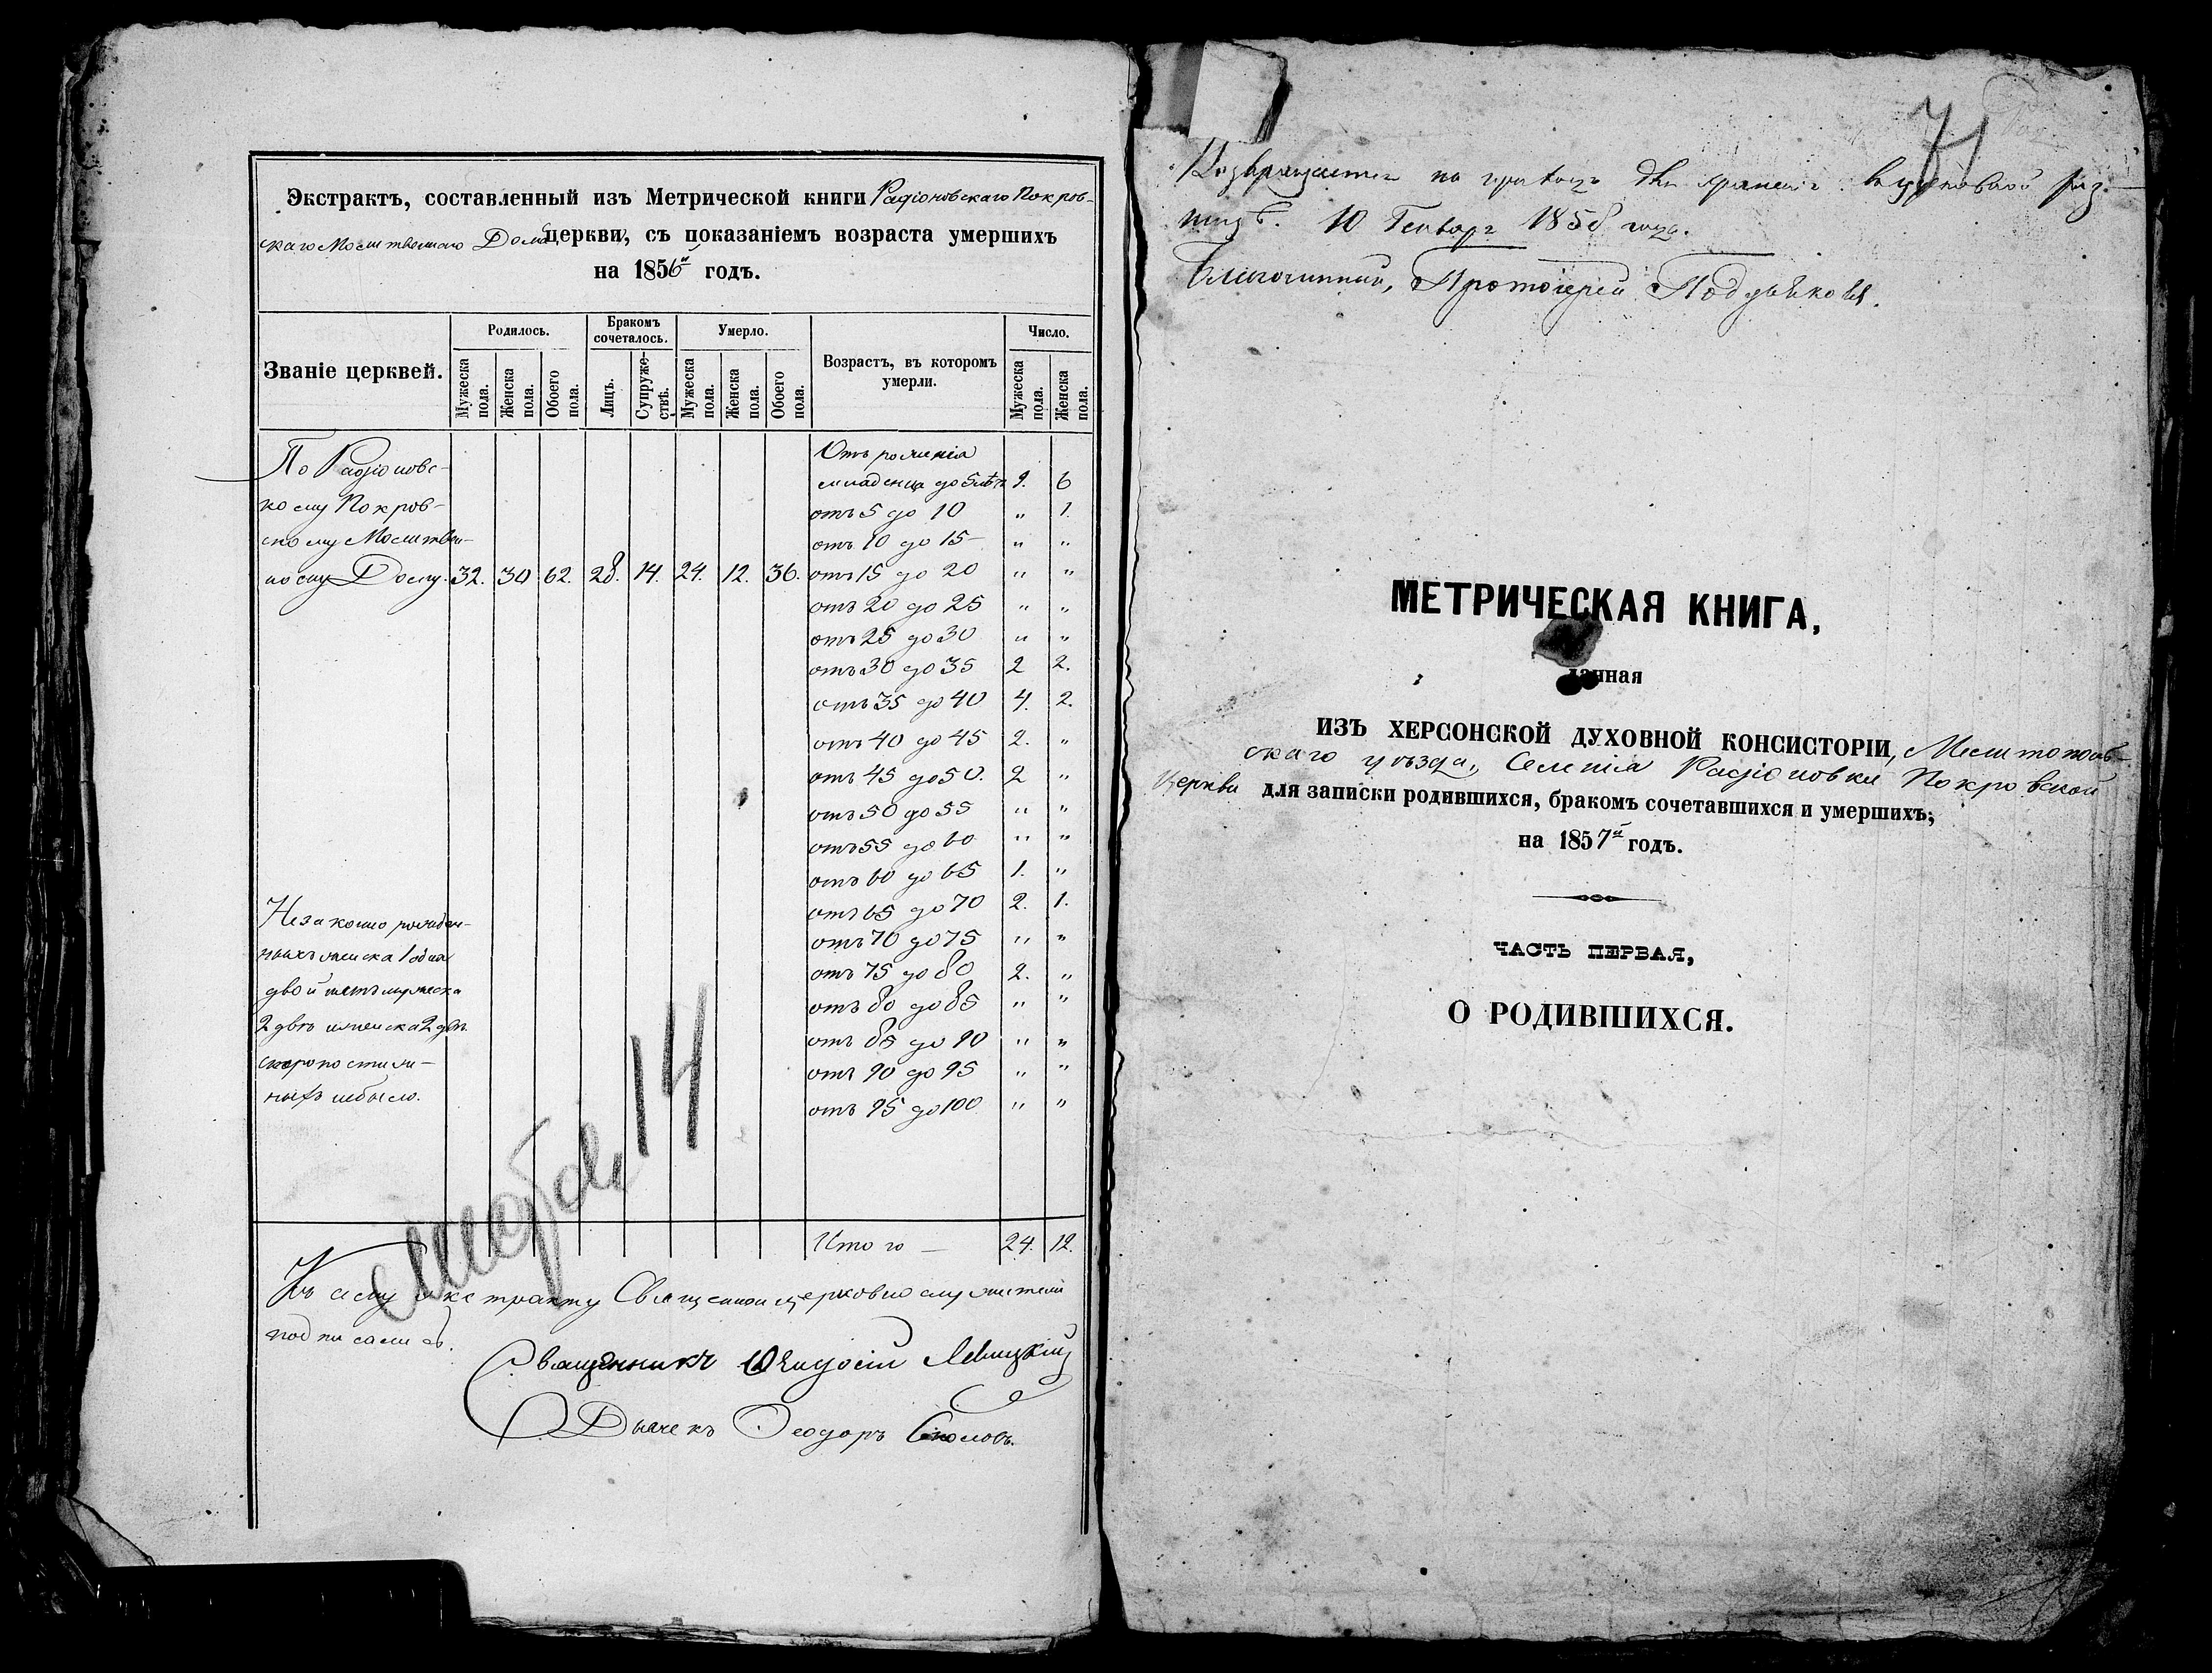 Экстрактъ, составленный изъ Метрической книги Радіоновскаго Покров-
скаго Молитвеннаго Дома церкви, съ показаніемъ возраста умершихъ
на 1856й годъ.
Званіе церквей.
Родилось.
Мужеска пола.
Женска пола.
Обоего пола.
Бракомъ сочеталось.
Лицъ.
Супружествъ.
Умерло.
Мужеска пола.
Женска пола.
Обоего пола.
Возрастъ, въ которомъ умерли.
Число.
Мужеска пола.
Женска пола.
По Радіоновс-
кому Покров-
скому Молитвен-
ному Дому. 32. 30 62. 28. 14. 24. 12. 36.
Отъ рожденія
младенца до 5 лѣтъ 9. 6
отъ 5 до 10 " 1.
отъ 10 до 15 " "
отъ 15 до 20 " "
отъ 20 до 25 " "
отъ 25 до 30 " "
отъ 30 до 35 2 2.
отъ 35 до 40 4. 2.
отъ 40 до 45 2. "
отъ 45 до 50. 2 "
отъ 50 до 55 " "
отъ 55 до 60 " "
отъ 60 до 65 1. "
отъ 65 до 70 2. 1.
отъ 70 до 75 " "
отъ 75 до 80 2. "
отъ 80 до 85 " "
отъ 85 до 90 " "
отъ 90 до 95 " "
отъ 95 до 100 " "
Незаконно рожден-
ныхъ женска 1 одна
двойнетъ мужеска
2 двѣ женска 2 двѣ
скоропостиж-
ныхъ небыло.
14
Итого — 24. 12.
Къ сему Экстракту Священно и церковно служители
подписались.
Священникъ Ѳеодосій Левицкій
Дьячекъ Ѳеодоръ Соколовъ.
71
Возвращается на причтъ для храненія въ церковной риз-
ницѣ. 10 Генваря 1858 года.
Благочинный, Протоіерей
МЕТРИЧЕСКАЯ КНИГА,
данная
ИЗЪ ХЕРСОНСКОЙ ДУХОВНОЙ КОНСИСТОРІИ, Мелитополь-
скаго уѣзда, Селенія Радіоновки Покровской
Церкви для записки родившихся, бракомъ сочетавшихся и умершихъ,
на 1857й годъ.
ЧАСТЬ ПЕРВАЯ,
О РОДИВШИХСЯ.